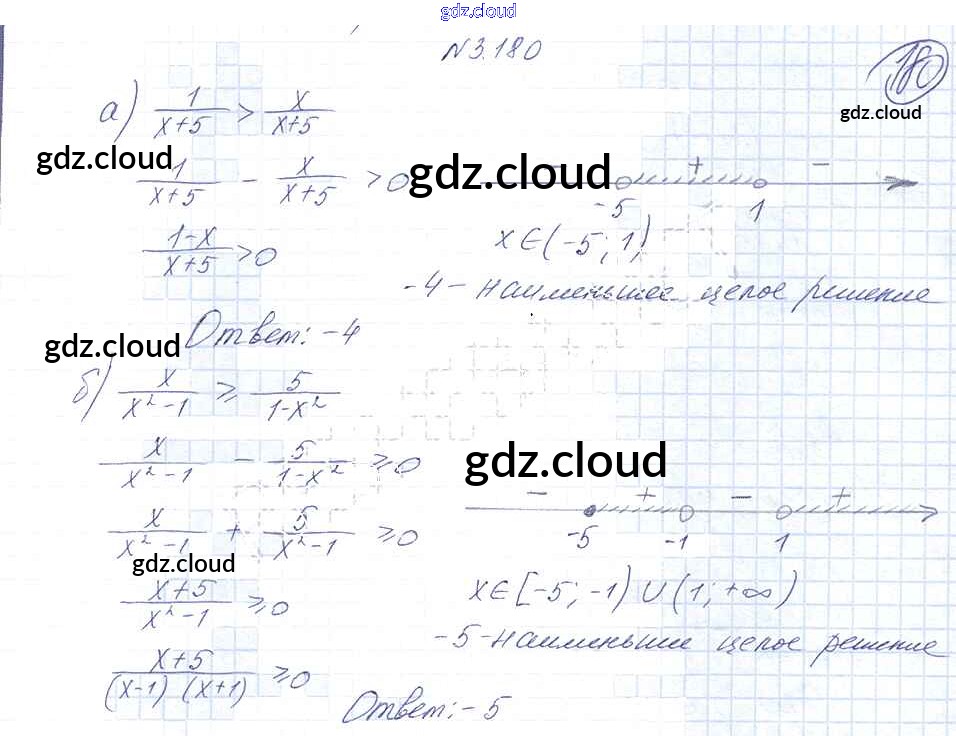 gdz.cloud
N3.180
180
gdz.cloud
а) 1/(x+5) > x/(x+5)
gdz.cloud
1/(x+5) - x/(x+5) > 0
gdz.cloud
- + -
-5 1
(1-x)/(x+5) > 0
x∈(-5; 1)
-4 - наименьшее целое решение
Ответ: -4
gdz.cloud
б) x/(x²-1) ≥ 5/(1-x²)
x/(x²-1) - 5/(1-x²) ≥ 0
gdz.cloud
x/(x²-1) + 5/(x²-1) ≥ 0
gdz.cloud
- + - +
-5 -1 1
(x+5)/(x²-1) ≥ 0
x∈[-5; -1) ∪ (1; +∞)
-5 - наименьшие целое решение
(x+5)/((x-1) (x+1)) ≥ 0
Ответ: -5